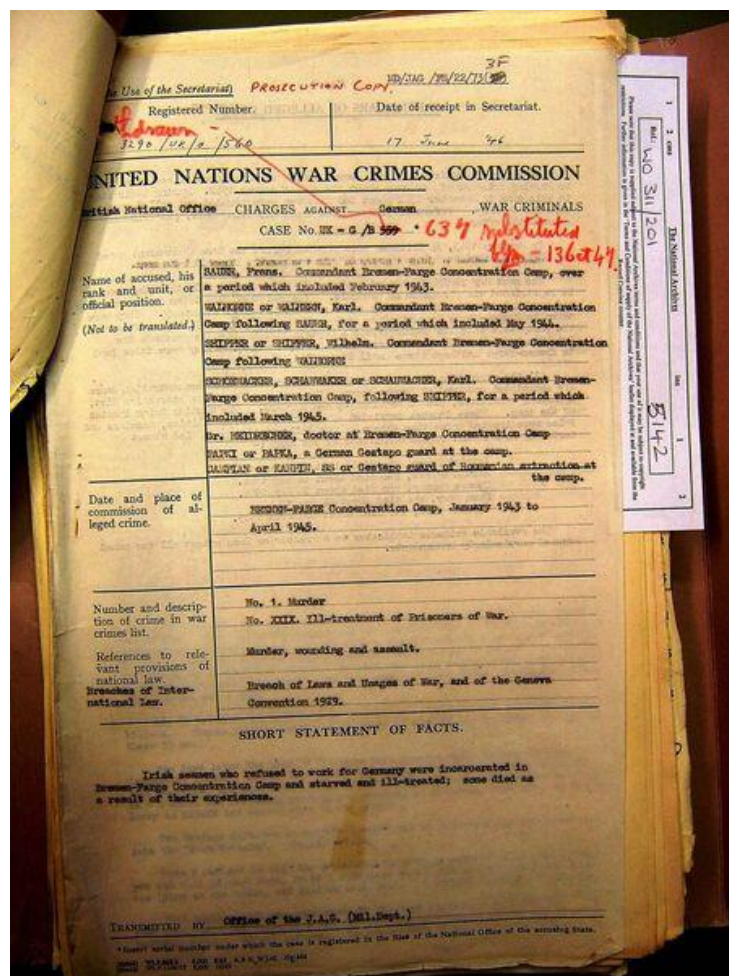 3F
the Use of the Secretariat) PROSECUTION COPY.
Registered Number. Date of receipt in Secretariat.
3290/UK/G/560 17 June '46
UNITED NATIONS WAR CRIMES COMMISSION
British National Office CHARGES AGAINST German , WAR CRIMINALS
CASE No. UK - G /B 559 * 637 substituted
136 of 47.
Name of accused, his
rank and unit, or
official position.
(Not to be translated.)
SAUER, Frans. Commandant Bremen-Farge Concentration Camp, over
a period which included February 1943.
WALHORNE or WALHORN, Karl. Commandant Bremen-Farge Concentration
Camp following SAUER, for a period which included May 1944.
SHIPPER or SHIFFER, Wilhelm. Commandant Bremen-Farge Concentration
Camp following WALHORNE
SCHONWACKER, SCHAUWAKER or SCHAUWACHER, Karl. Commandant Bremen-
Farge Concentration Camp, following SHIPPER, for a period which
included March 1945.
Dr. doctor at Bremen-Farge Concentration Camp
PAPKI or PAPKA, a German Gestapo guard at the camp.
CAMPIAN or KANPIN, SS or Gestapo guard of Roumanian extraction at
the camp.
Date and place of
commission of al-
leged crime.
BREMEN-FARGE Concentration Camp, January 1943 to
April 1945.
Number and descrip-
tion of crime in war
crimes list.
No. 1. Murder
No. XXIX. Ill-treatment of Prisoners of War.
References to rele-
vant provisions of
national law.
Breaches of Inter-
national Law.
Murder, wounding and assault.
Breach of Laws and Usages of War, and of the Geneva
Convention 1929.
SHORT STATEMENT OF FACTS.
Irish seamen who refused to work for Germany were incarcerated in
Bremen-Farge Concentration Camp and starved and ill-treated; some died as
a result of their experiences.
TRANSMITTED BY Office of the J.A.G. (Mil.Dept.)
*Insert serial number under which the case is registered in the files of the National Office of the accusing State.
The National Archives
Ref.: WO 311/201
5142